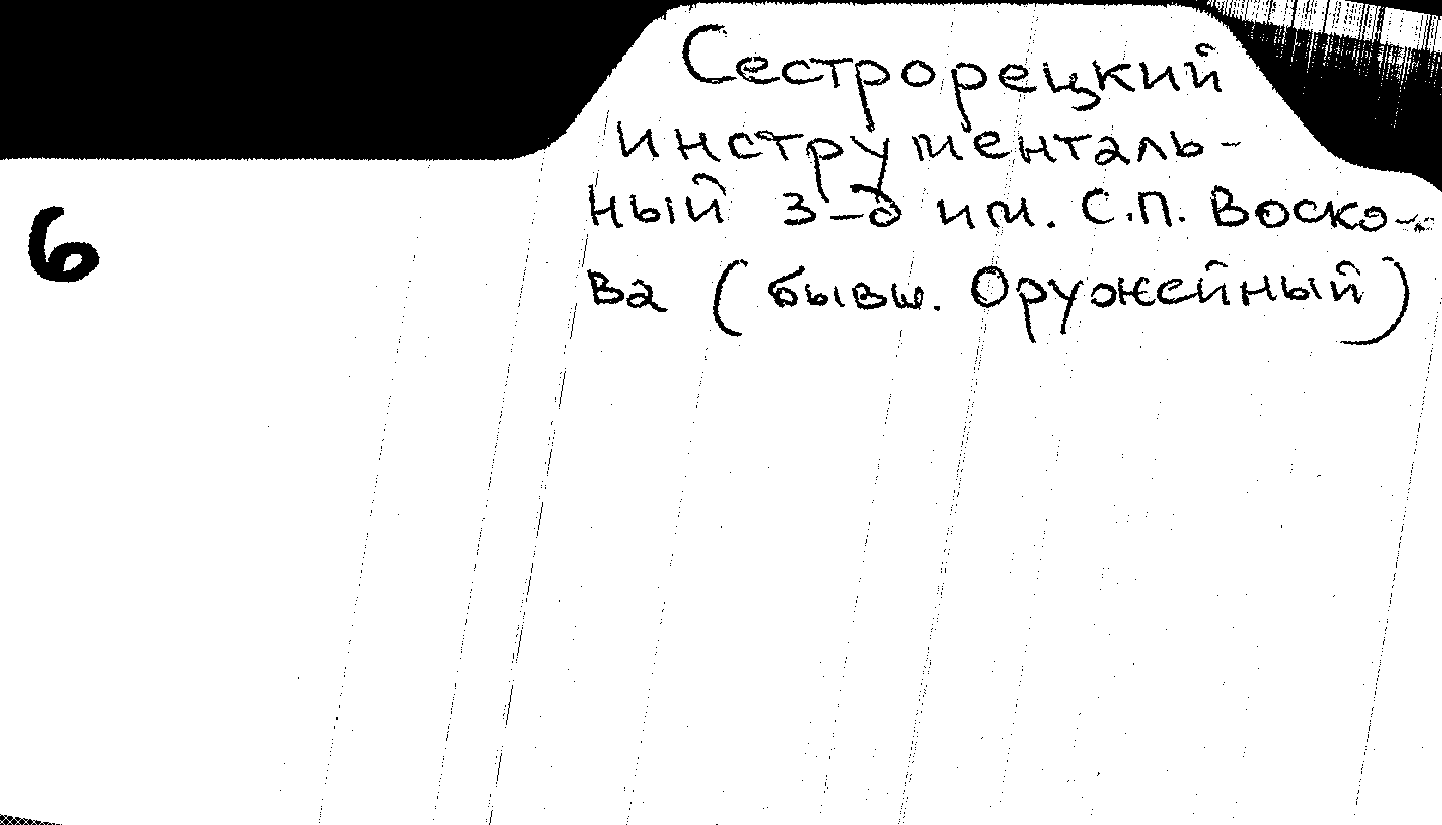 Сестрорецкий
инструменталь-
ный з-д им. С.П. Воско-
ва (бывш. Оружейный)
6